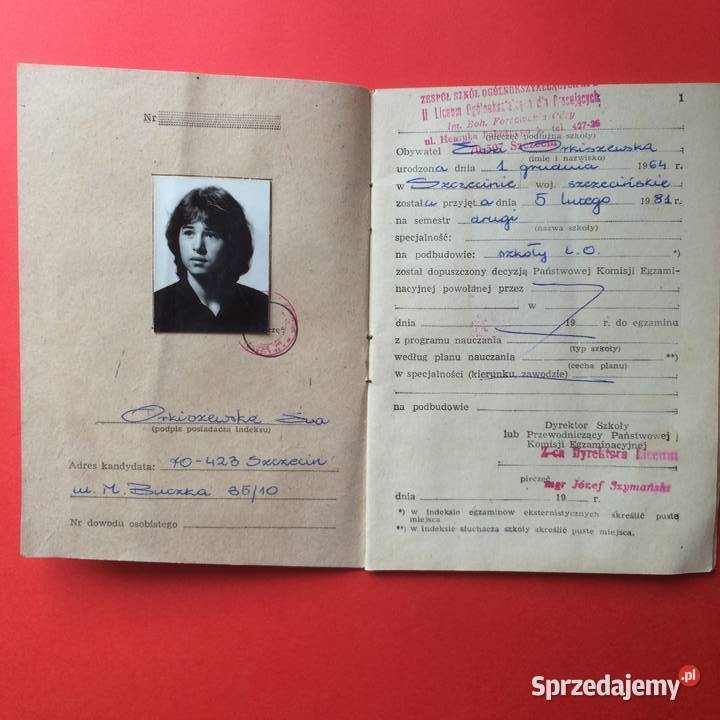 Nr
Orkiszewska Ewa
(podpis posiadacza indeksu)
Adres kandydata: 70-423 Szczecin
ul. M. Buczka 35/10
Nr dowodu osobistego
1
ZESPÓŁ SZKÓŁ OGÓLNOKSZTAŁCĄCYCH
II Liceum Ogólnokształcące dla Pracujących
im. Boh.
ul. Henryka tel. 427-36
70-507 Szczecin
(pieczęć podłużna szkoły)
Obywatel Ewa Orkiszewska
(imię i nazwisko)
urodzona dnia 1 grudnia 1964 r.
w Szczecinie woj. szczecińskie
została przyjęta dnia 5 lutego 1981 r.
na semestr drugi
(nazwa szkoły)
specjalność:
na podbudowie: szkoły L.O. *)
został dopuszczony decyzją Państwowej Komisji Egzami-
nacyjnej powołanej przez
w
dnia 19 r. do egzaminu
z programu nauczania
(typ szkoły)
według planu nauczania **)
(cecha planu)
w specjalności (kierunku, zawodzie)
na podbudowie
Dyrektor Szkoły
lub Przewodniczący Państwowej
Komisji Egzaminacyjnej
Z-ca Dyrektora Liceum
pieczęć
mgr Józef Szymański
dnia 19 r.
*) w indeksie egzaminów eksternistycznych skreślić puste
miejsca
**) w indeksie słuchacza szkoły skreślić puste miejsca.
Sprzedajemy.pl